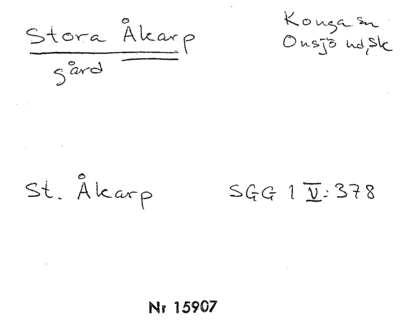 Stora Åkarp
gård
Konga sn
Onsjö hd, Sk
St. Åkarp
SGG 1 V: 378
Nr 15907